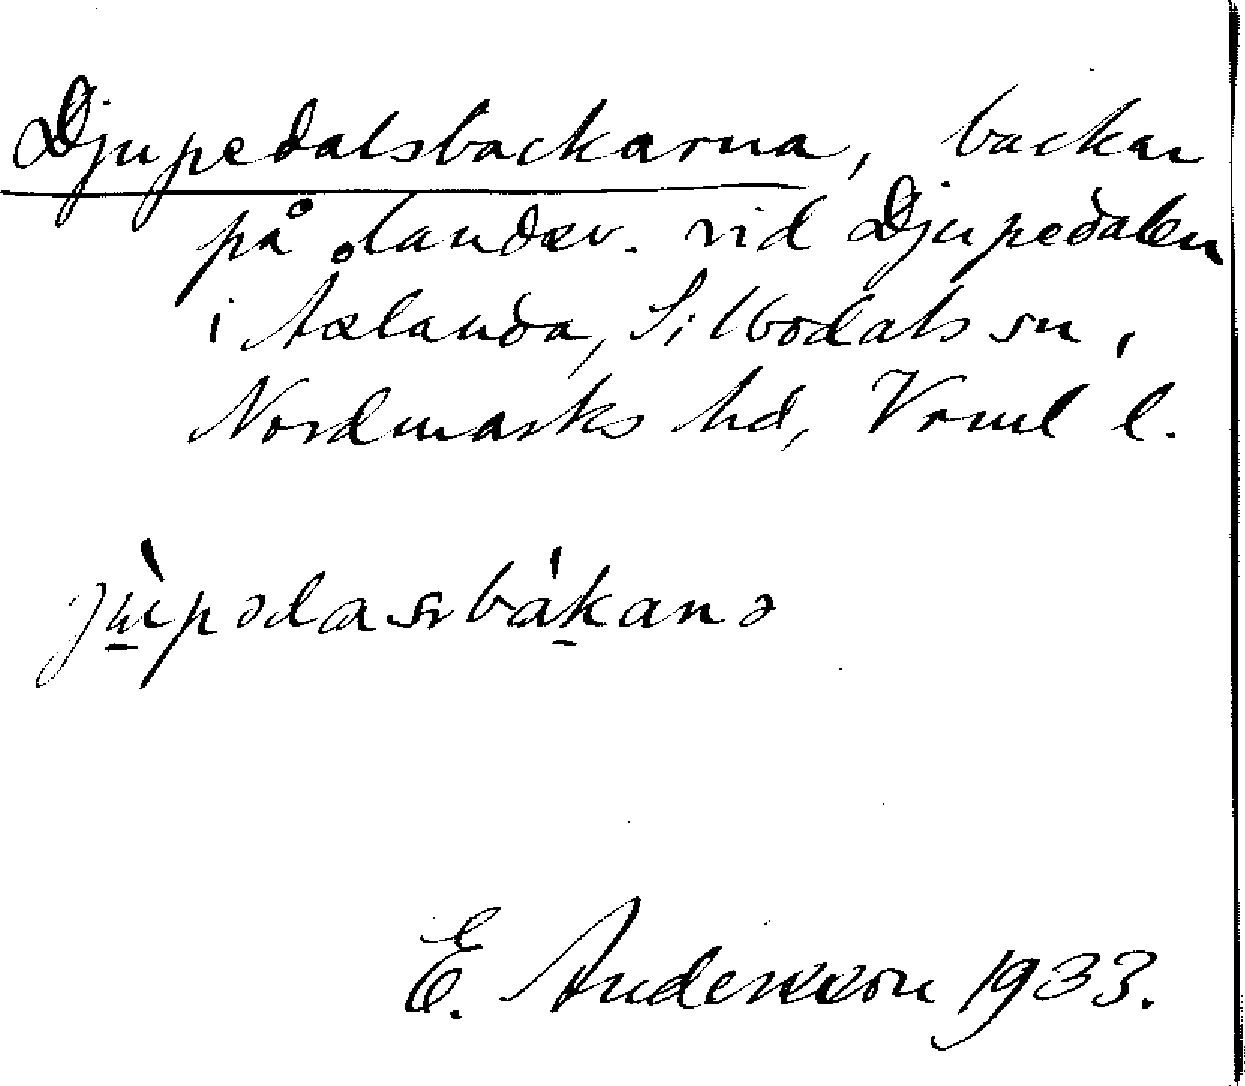 Djupedalsbackarna, backar
på landsv. vid Djupedalen
i Årlanda, Silbodals sn,
Nordmarks hd, Vrml l.
E. Andersson 1933.